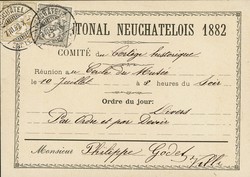 TONAL NEUCHATELOIS 1882
COMITÉ des Cortège historique
Réunion au Cercle du Musée
le 10 Juillet à 8 heures du Soir
Ordre du jour:
Divers
Par Ordre et par Devoir
Monsieur Philippe Godet,
Ville